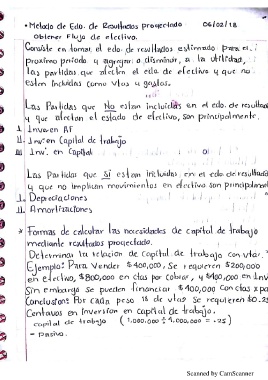 • Metodo de Edo. de Resultados proyectado 06/02/18
Obtener Flujo de efectivo.
Consiste en tomar el edo. de resultados estimado para el
proximo periodo y agregar o disminuir, a la utilidad,
las partidas que afecten el edo de efectivo y que no
esten incluidas como vtas y gastos.
Las Partidas que No estan incluidas en el edo. de resultado
y que afectan el estado de efectivo, son principalmente,
I. Inver en AF
II. Inv. en Capital de trabajo
III Inv. en Capital
Las Partidas que Sí estan incluidas en el edo. de resultados
y que no implican movimientos en efectivo son principalment
I. Depreciaciones
II. Amortizaciones
* Formas de calcular las necesidades de capital de trabajo
mediante resultados proyectado.
Determinar la relacion de Capital de trabajo con vtas.
Ejemplo: Para Vender $400,000, Se requieren $200,000
en efectivo, $800,000 en ctas por cobrar, y $400,000 en Inv
Sin embargo se pueden financiar $400,000 con ctas x pa
Conclusion: Por cada peso 1$ de vtas se requieren $0.25
Centavos en Inversion en capital de trabajo.
capital de trabajo (1,000,000 ÷ 4,000,000 = .25)
- pasivo.
Scanned by CamScanner